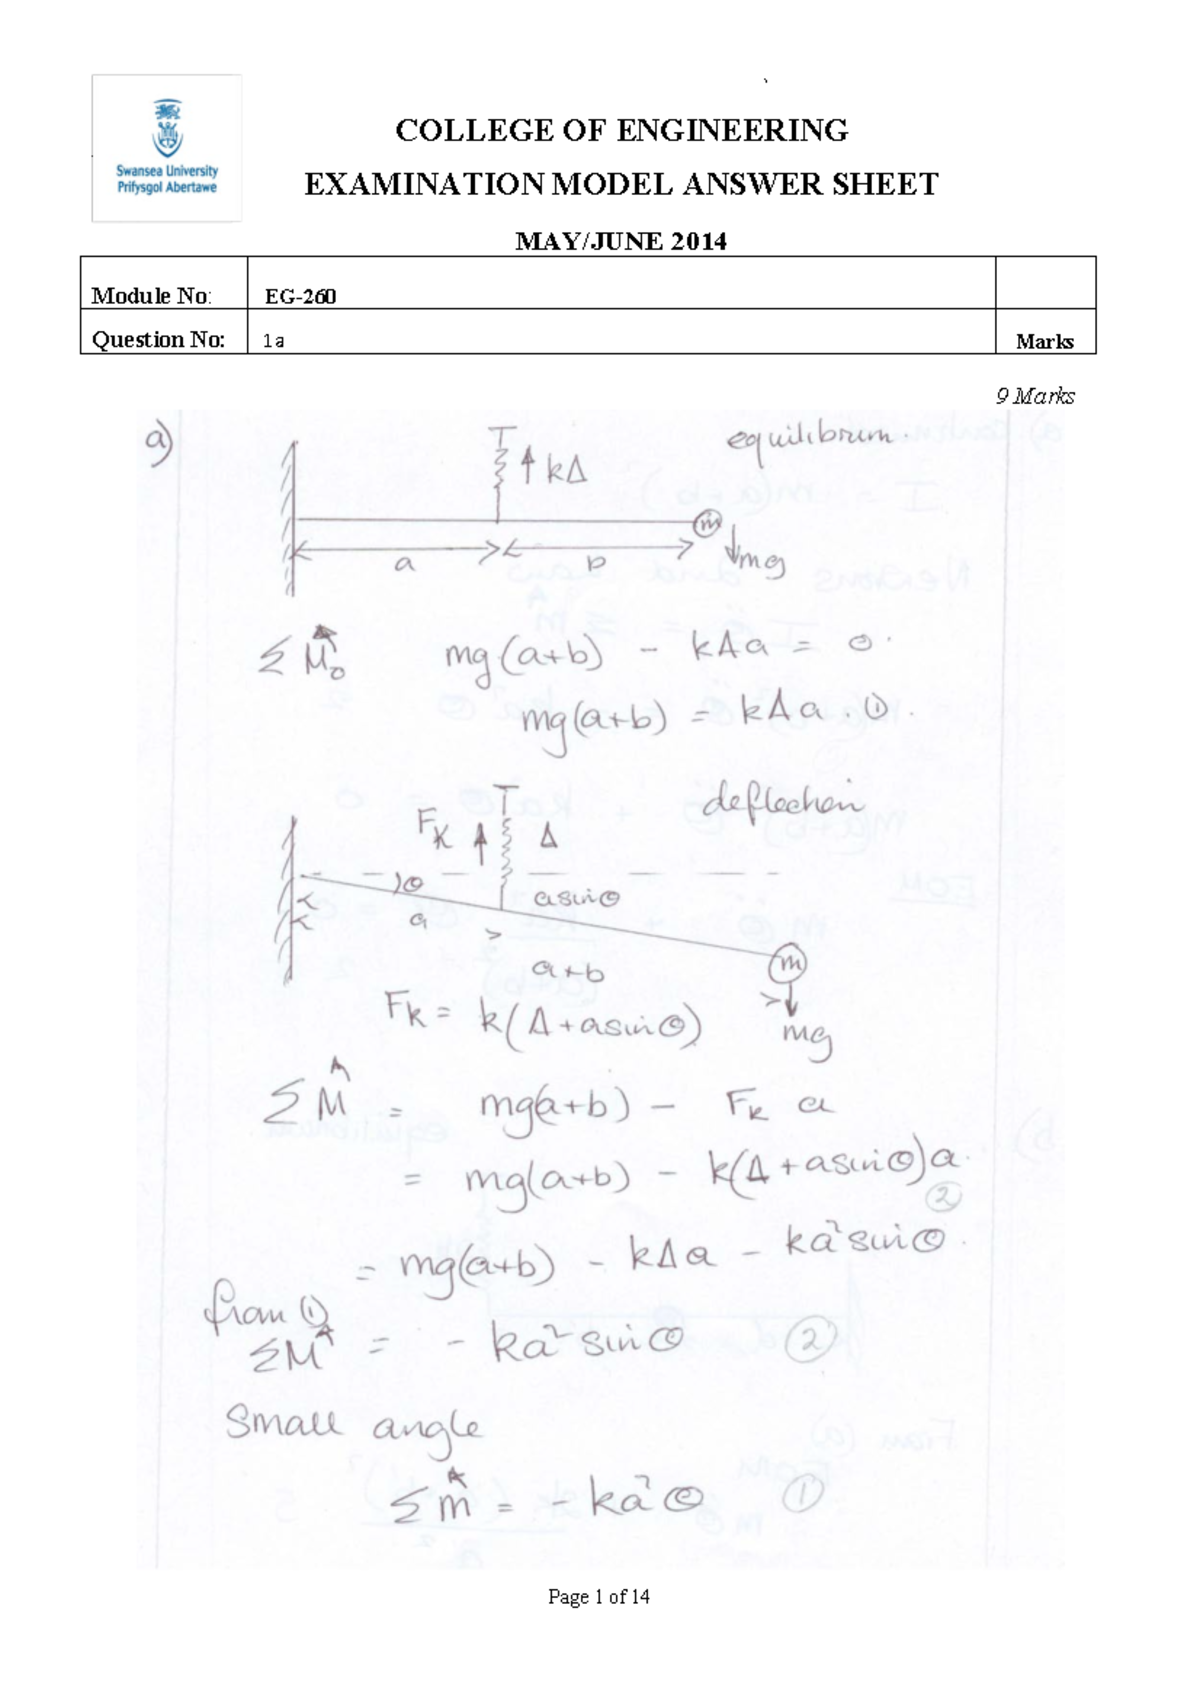 Swansea University
Prifysgol Abertawe
COLLEGE OF ENGINEERING
EXAMINATION MODEL ANSWER SHEET
MAY/JUNE 2014
Module No: EG-260
Question No: 1a Marks
9 Marks
a) equilibrium.
kΔ
m
a b mg
Σ M₀ mg(a+b) - kΔa = 0
mg(a+b) = kΔa . ①.
deflection
Fk Δ
θ asinθ
a
m
a+b
Fk = k(Δ+asinθ) mg
Σ M = mg(a+b) - Fk a
= mg(a+b) - k(Δ+asinθ)a.
②
= mg(a+b) - kΔa - ka²sinθ.
from ①
ΣM = - ka²sinθ ②
Small angle
Σ m = - ka²θ ①
Page 1 of 14